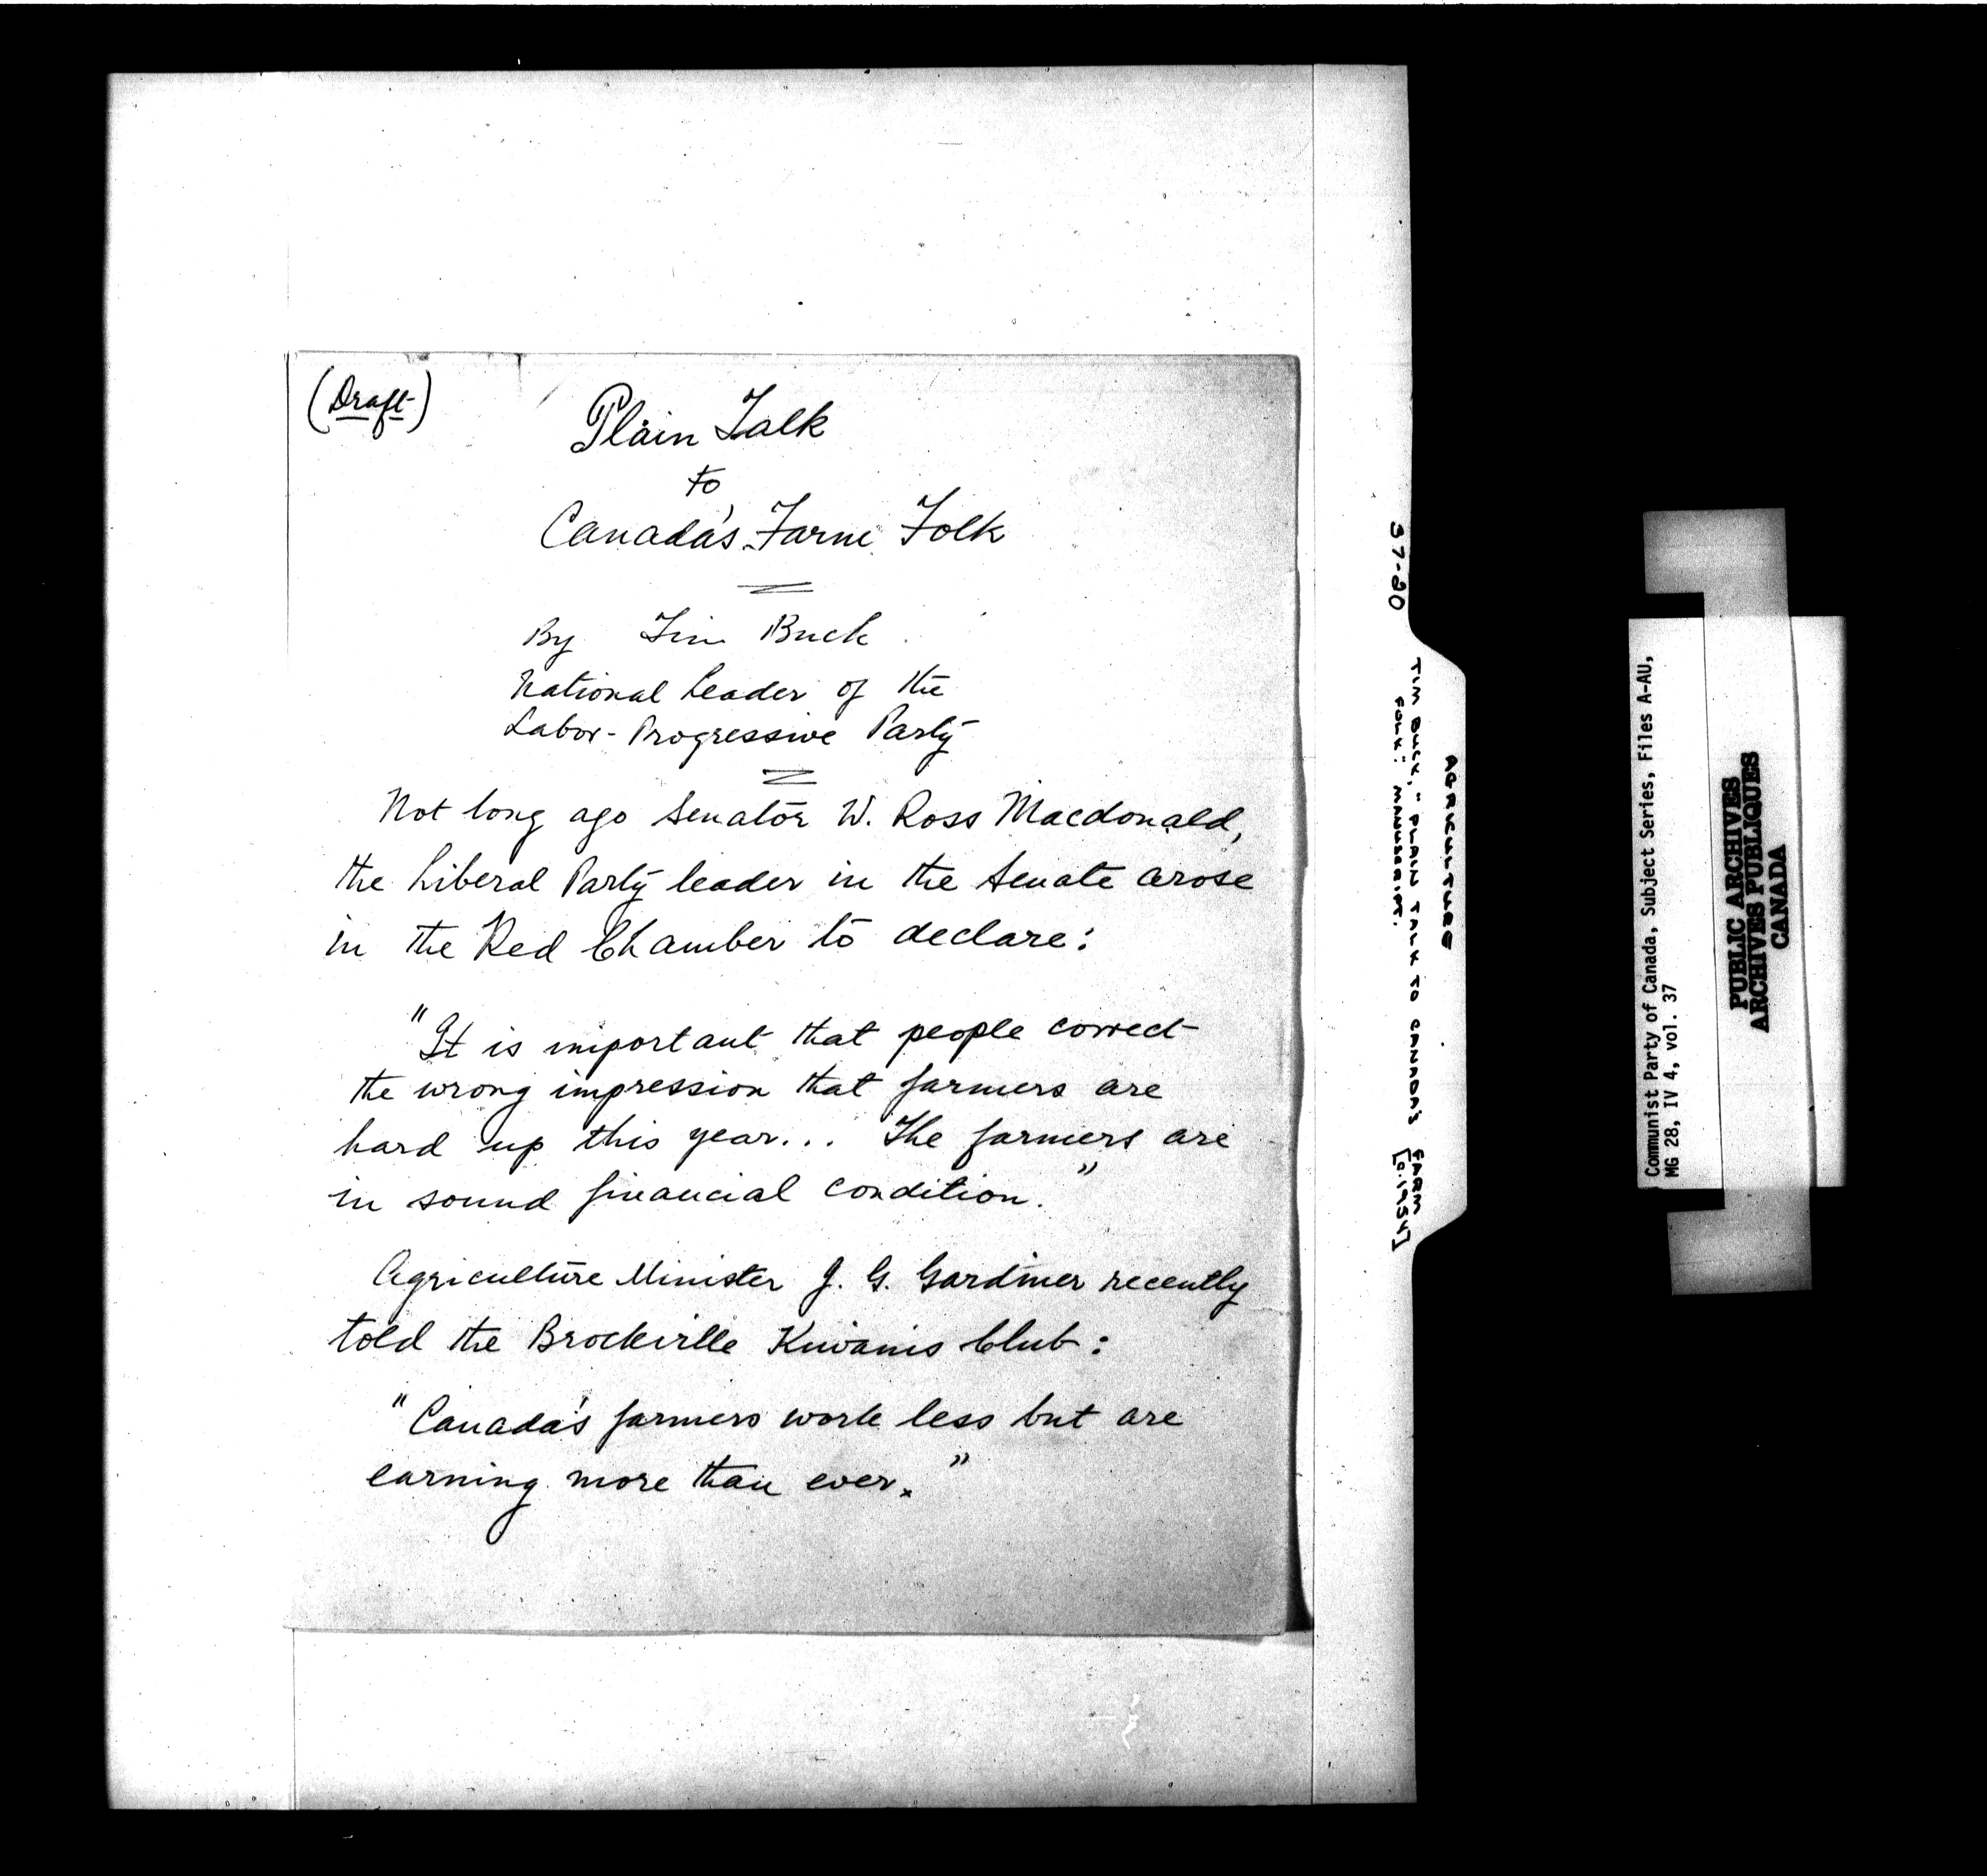 (Draft)
Plain Talk
to
Canada's Farm Folk
By Tim Buck
National Leader of the
Labor-Progressive Party
Not long ago Senator W. Ross Macdonald,
the Liberal Party leader in the Senate arose
in the Red Chamber to declare:
"It is important that people correct
the wrong impression that farmers are
hard up this year... The farmers are
in sound financial condition."
Agriculture Minister J. G. Gardiner recently
told the Brockville Kiwanis Club:
"Canada's farmers work less but are
earning more than ever."
37-20
AGRICULTURE
TIM BUCK, "PLAIN TALK TO CANADA'S FARM
FOLK: MANUSCRIPT. [c.1954]
Communist Party of Canada, Subject Series, Files A-AU,
MG 28, IV 4, vol. 37
PUBLIC ARCHIVES
ARCHIVES PUBLIQUES
CANADA